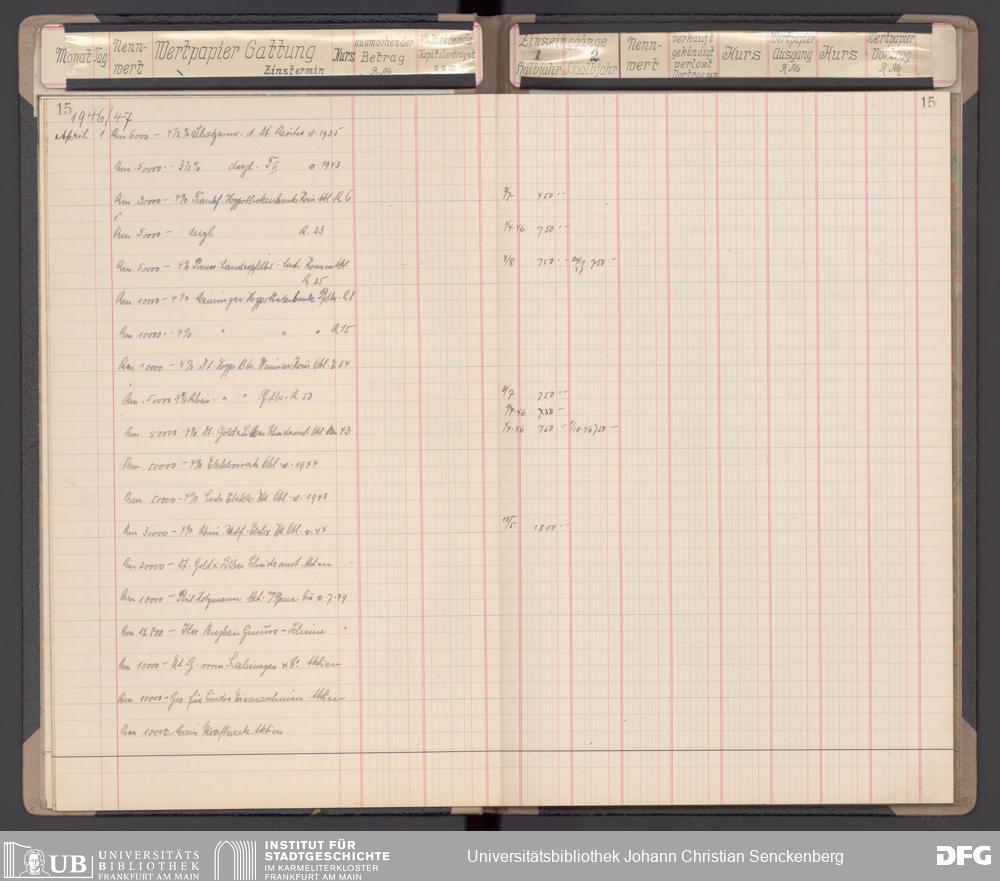 Monat Tag Nenn-wert Wertpapier Gattung Zinstermin Kurs ausmachender Betrag RM
1 Halbjahr 2 Halbjahr Nenn-wert verkauft gekündigt verlost Kurs Wertpapier Ausgang RM Kurs Wertpapier Vortrag RM
15 15
1946/47
April 1 Rm 6000 - 4½% Schatzanw. d. Dt Reiches v. 1935
Rm 50000 - 3½% dergl. F II v. 1943
Rm 30000 - 4% Frankf. Hypothekenbank Kom Obl R 6 2/7 450.-
Rm 50000 - dergl. R. 23 1/4.46 750.-
Rm 50000 - 4% Preuss. Landespfdbr. Anst. Komm Obl. 2/8 750.- 750 -
R 25
Rm 10000 - 4% Meininger Hypothekenbank Pfdbr. R 8
Rm 10000.- 4% " " " R 15
Rm 10000 - 4% Dt. Hypp. Bk. Weimar Kom Obl. E 34
Rm 50000 4% Rhein. " " Pfdbr. R 50 2/7 750.-
1/4.46 750 -
Rm 50000 - 4% Dt. Gold & Silber Scheideanst Obl Rm 43 1/4.46 750 - 1/10.46 750 -
Rm 50000 - 4% Elektrowerke Obl. v. 1944
Rm 50000 - 4% Obl. v. 1943
Rm 30000 - 4% Rhein. Westf. Elektr Wk Obl. v. 44 15/5 1800.-
Rm 20000 - Dt. Gold & Silber Scheideanst. Aktien
Rm 10000 - Phil Holzmann Akt.
Rm 12800 - Ilse Bergbau Genuss - Scheine
Rm 10000 - El. G. vorm. Lahmeyer & Co Aktien
Rm 10000 - Ges für Lindes Eismaschinen Aktien
Rm 10000 Main Kraftwerke Aktien
UB UNIVERSITÄTS
BIBLIOTHEK
FRANKFURT AM MAIN
INSTITUT FÜR
STADTGESCHICHTE
IM KARMELITERKLOSTER
FRANKFURT AM MAIN
Universitätsbibliothek Johann Christian Senckenberg
DFG